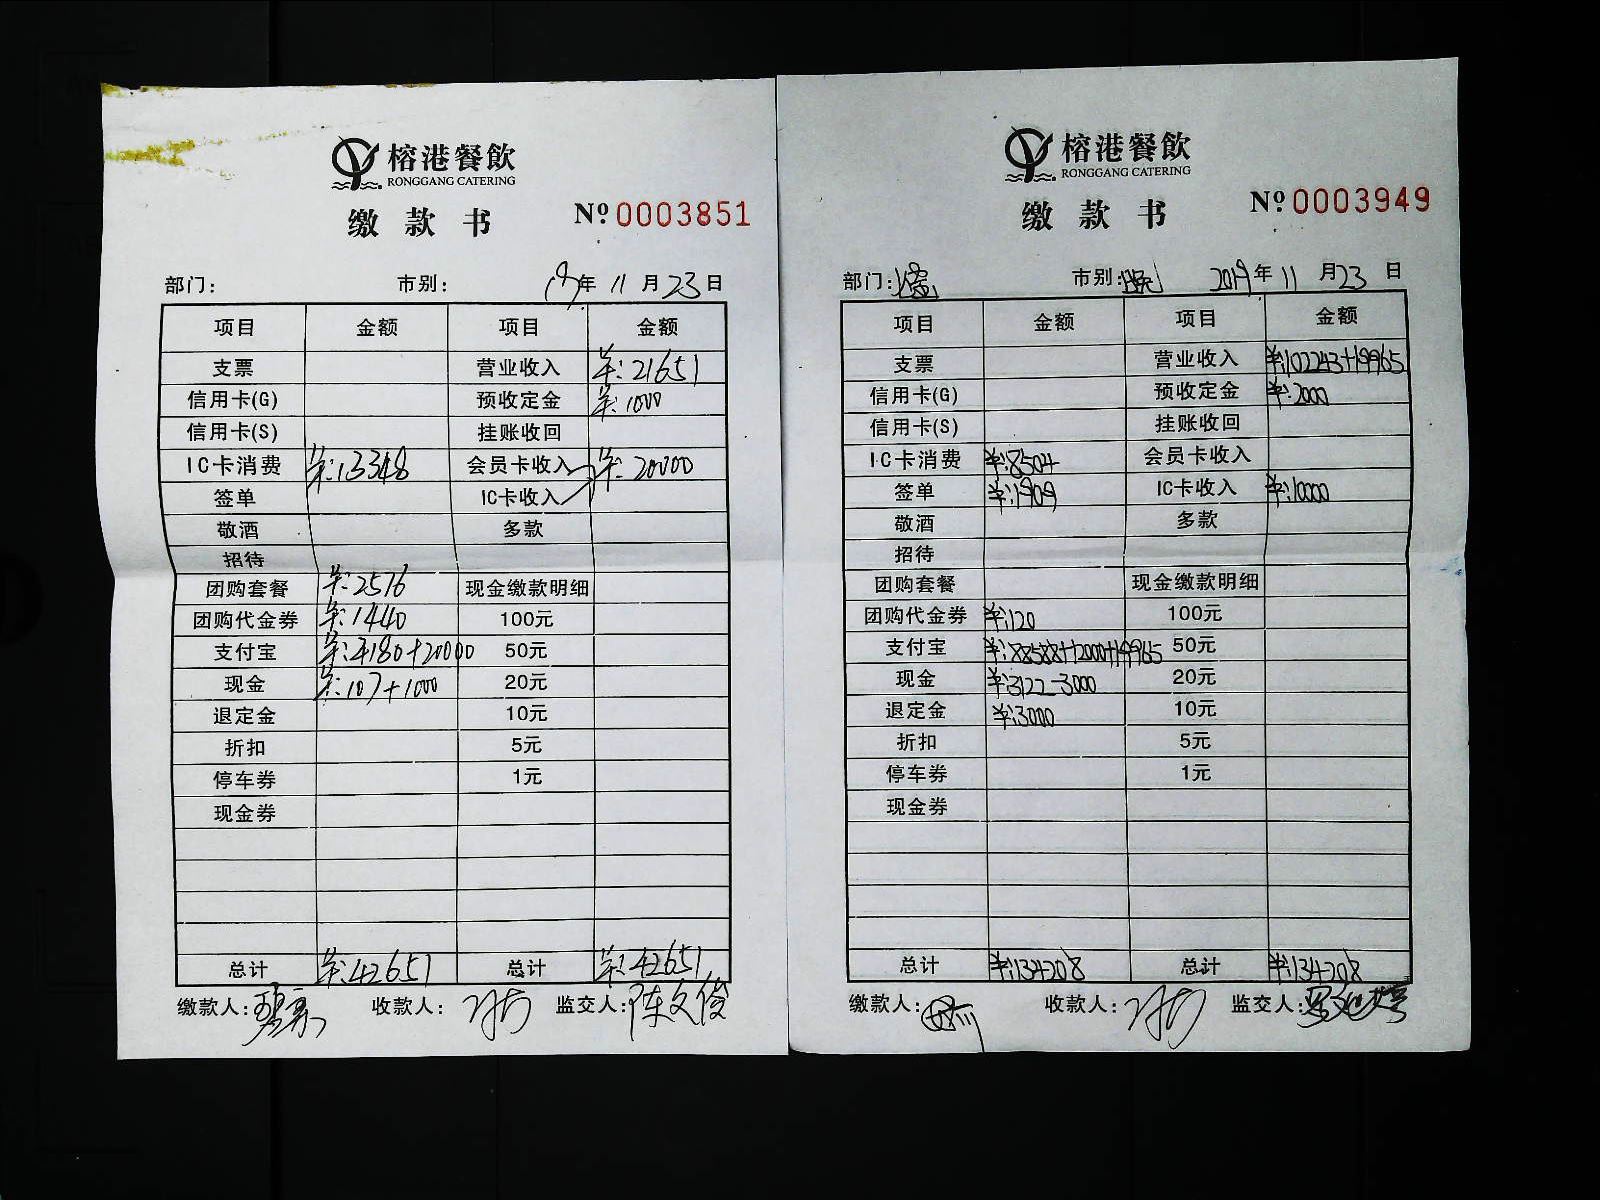 榕港餐飲
RONGGANG CATERING
缴款书 Nº 0003851
部门： 市别： 19年 11月23日
项目 金额 项目 金额
支票 营业收入 ¥：21651
信用卡(G) 预收定金 ¥：1000
信用卡(S) 挂账收回
IC卡消费 ¥：13348 会员卡收入 ¥：20000
签单 IC卡收入
敬酒 多款
招待
团购套餐 ¥：2576 现金缴款明细
团购代金券 ¥：1440 100元
支付宝 ¥：4180+20000 50元
现金 ¥：107+1000 20元
退定金 10元
折扣 5元
停车券 1元
现金券
总计 ¥：42651 总计 ¥：42651
缴款人： 收款人： 监交人：陈文俊
榕港餐飲
RONGGANG CATERING
缴款书 Nº 0003949
部门： 市别： 2019年 11月23日
项目 金额 项目 金额
支票 营业收入 ¥：102243+19965
信用卡(G) 预收定金 ¥：2000
信用卡(S) 挂账收回
IC卡消费 ¥：8504 会员卡收入
签单 ¥：1909 IC卡收入 ¥：10000
敬酒 多款
招待
团购套餐 现金缴款明细
团购代金券 ¥：120 100元
支付宝 ¥：88588+12000+19965 50元
现金 ¥：3122-3000 20元
退定金 ¥：3000 10元
折扣 5元
停车券 1元
现金券
总计 ¥：134208 总计 ¥：134208
缴款人： 收款人： 监交人：